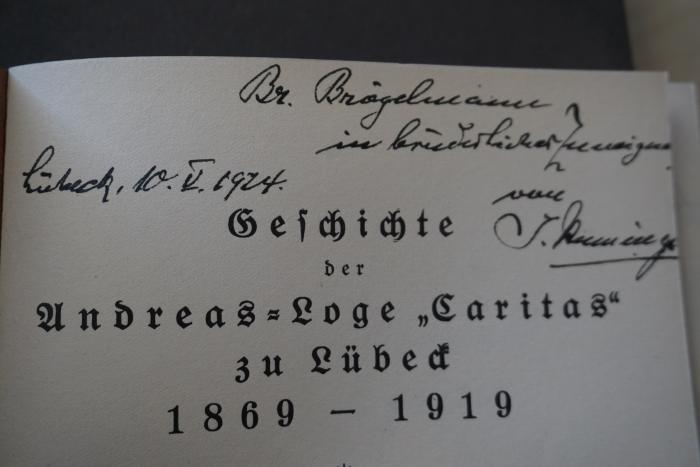 Br. Brögelmann
in brüderlicher Zuneigung
von
Lübeck, 10. V. 1924.
Geschichte
der
Andreas-Loge „Caritas“
zu Lübeck
1869 – 1919